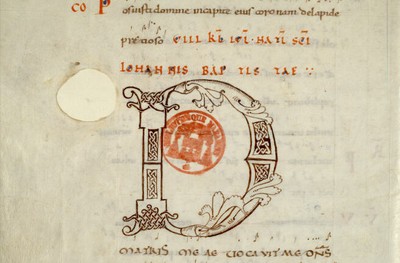 CO P
osuisti domine in capite eius coronam de lapide
precioso VIII KL IUL · NATI SCI
IOHANNIS BAPTISTAE
D
MATRIS MEAE VOCAVIT ME DNS